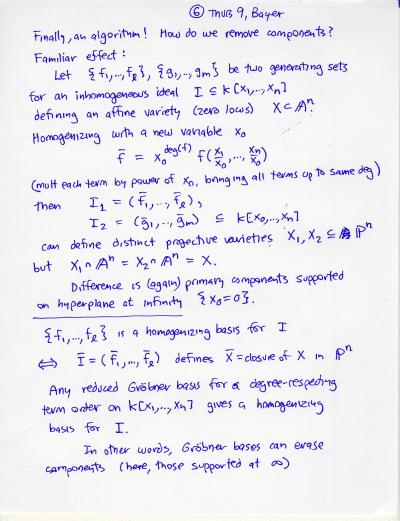 ⑥ Thurs 9, Bayer
Finally, an algorithm! How do we remove components?
Familiar effect:
Let {f₁,..,fℓ}, {g₁,..,gₘ} be two generating sets
for an inhomogeneous ideal I ⊆ k[x₁,..,xₙ]
defining an affine variety (zero locus) X ⊂ 𝔸ⁿ.
Homogenizing with a new variable x₀
f̄ = x₀^deg(f) f(x₁/x₀,..,xₙ/x₀)
(mult each term by power of x₀, bringing all terms up to same deg)
then I₁ = (f̄₁,..,f̄ℓ),
I₂ = (ḡ₁,..,ḡₘ) ⊆ k[x₀,..,xₙ]
can define distinct projective varieties X₁, X₂ ⊆ ℙⁿ
but X₁ ∩ 𝔸ⁿ = X₂ ∩ 𝔸ⁿ = X.
Difference is (again) primary components supported
on hyperplane at infinity {x₀=0}.
{f₁,..,fℓ} is a homogenizing basis for I
⇔ Ī = (f̄₁,..,f̄ℓ) defines X̄ = closure of X in ℙⁿ
Any reduced Gröbner basis for a degree-respecting
term order on k[x₁,..,xₙ] gives a homogenizing
basis for I.
In other words, Gröbner bases can erase
components (here, those supported at ∞)